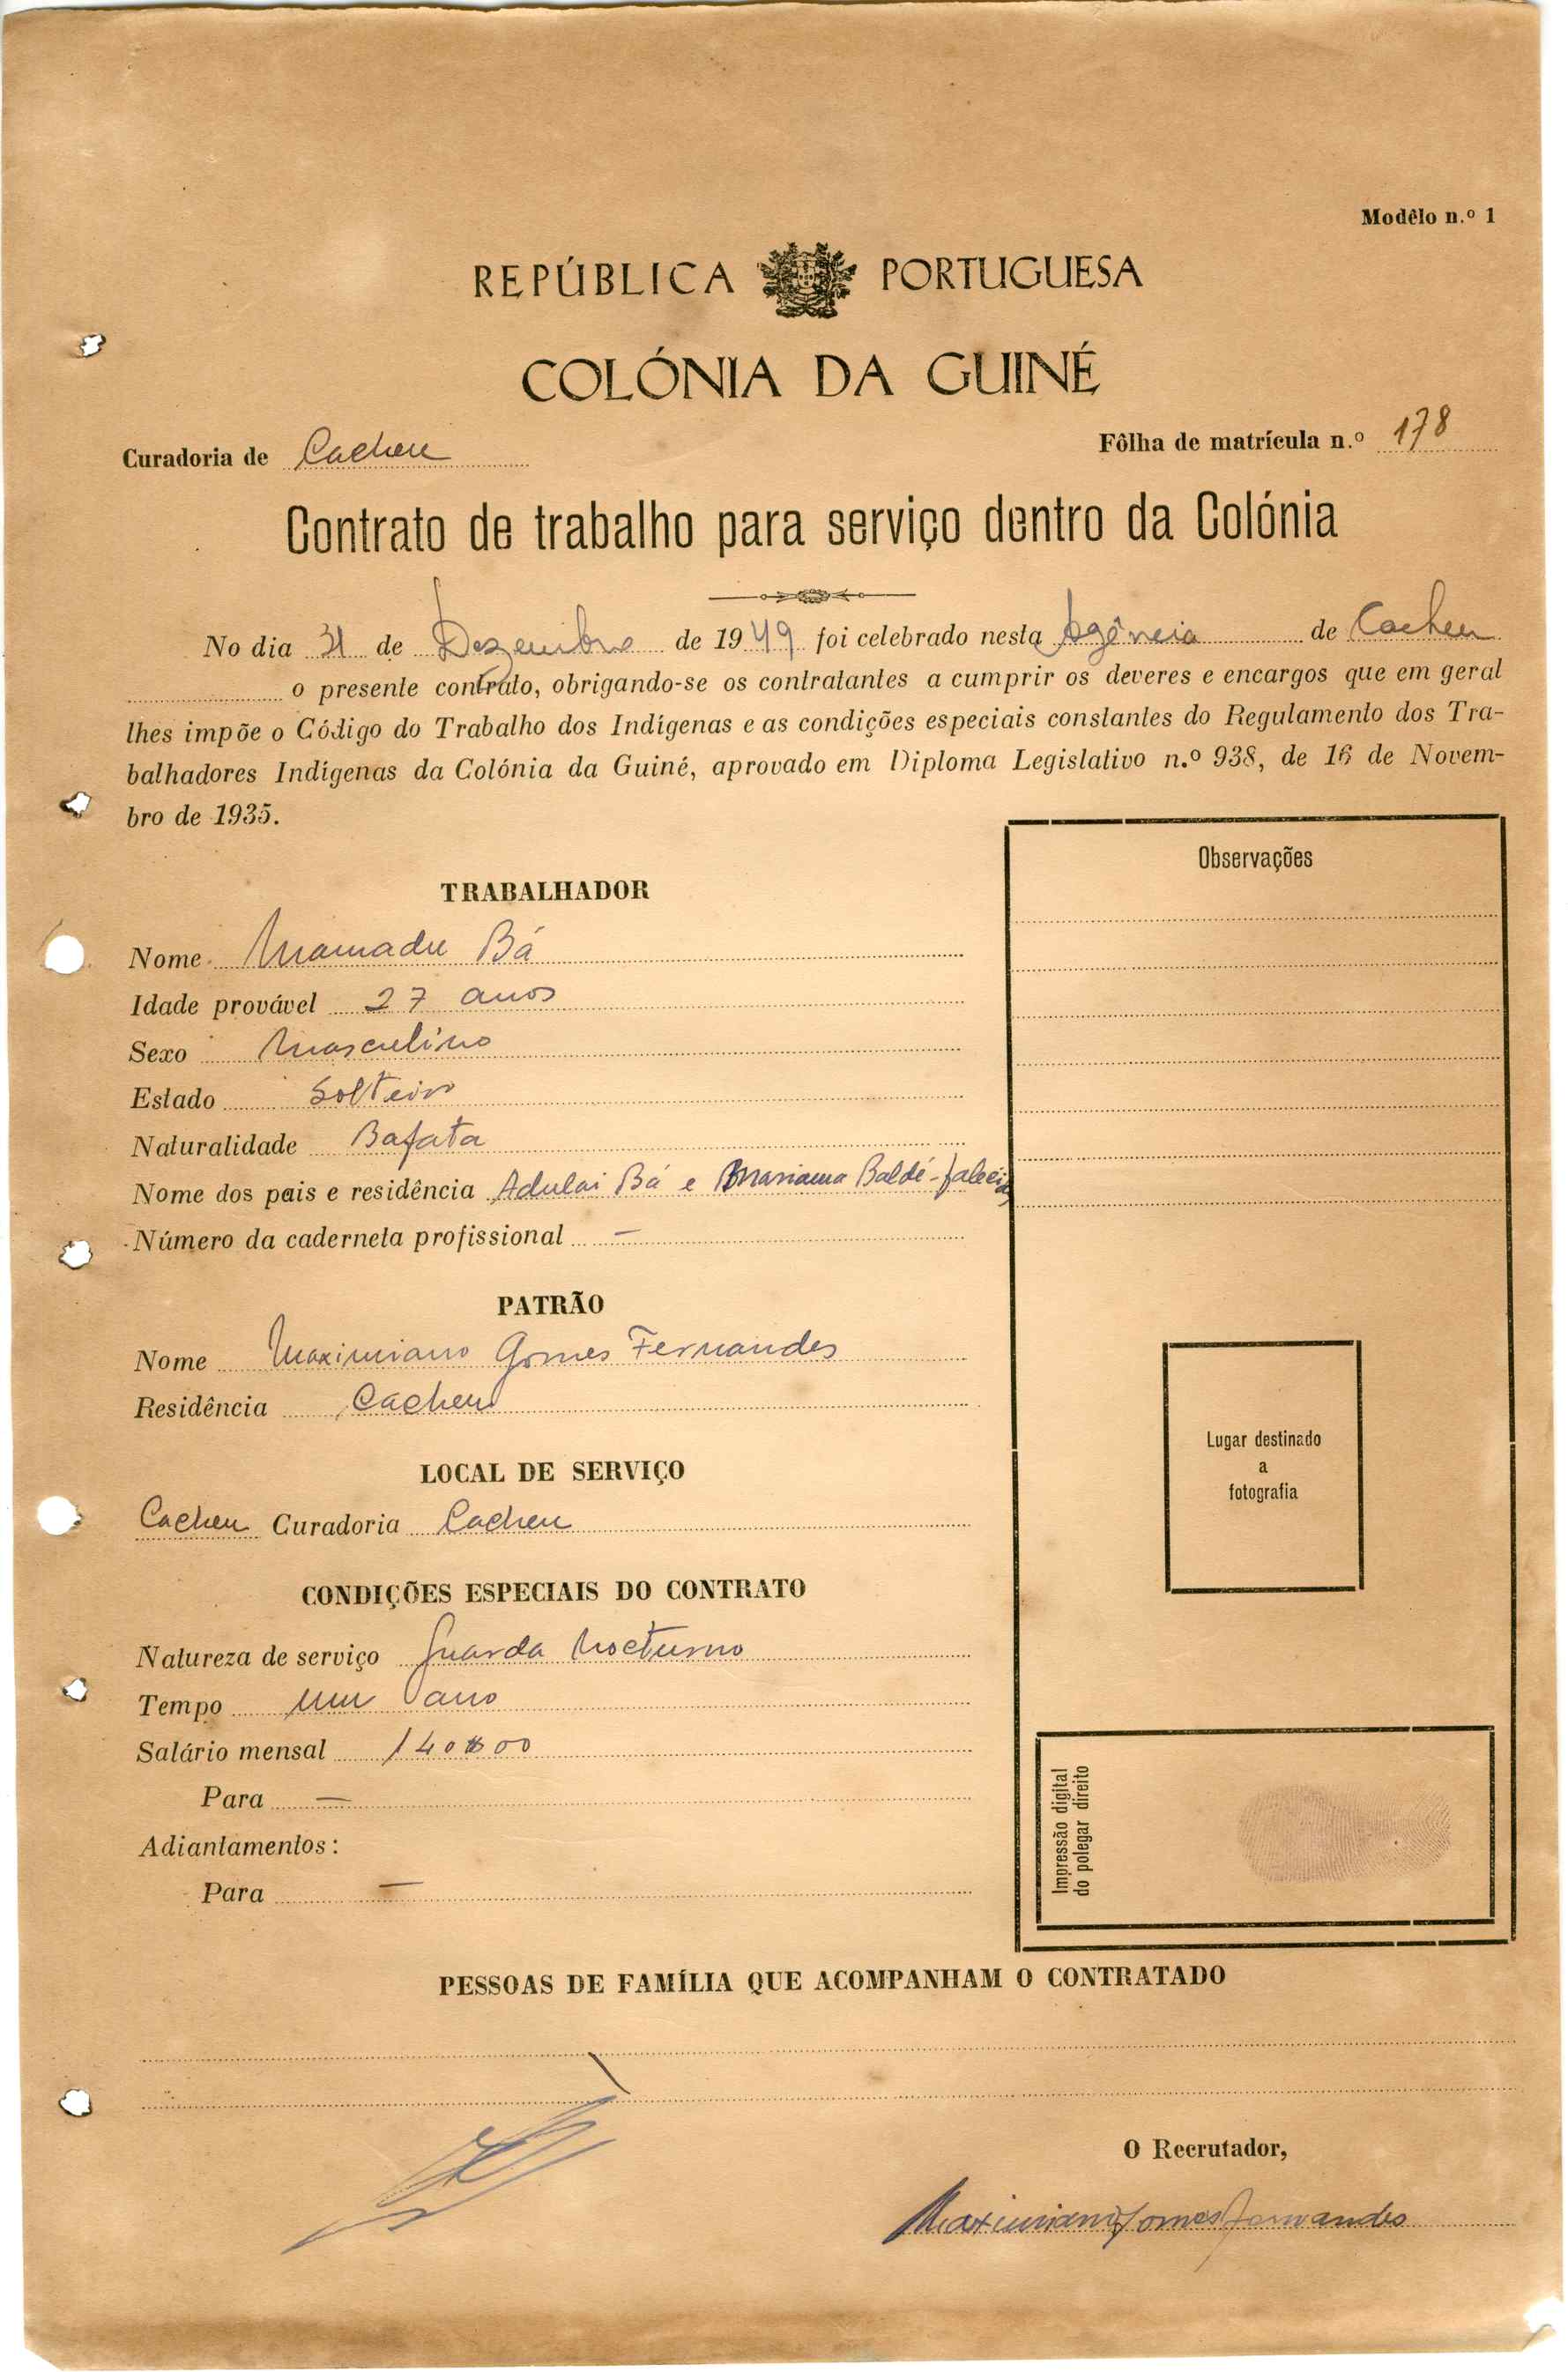 Modêlo n.º 1
REPÚBLICA PORTUGUESA
COLÓNIA DA GUINÉ
Curadoria de Cacheu Fôlha de matrícula n.º 178
Contrato de trabalho para serviço dentro da Colónia
No dia 31 de Dezembro de 1949 foi celebrado nesta Agência de Cacheu
o presente contrato, obrigando-se os contratantes a cumprir os deveres e encargos que em geral
lhes impõe o Código do Trabalho dos Indígenas e as condições especiais constantes do Regulamento dos Tra-
balhadores Indígenas da Colónia da Guiné, aprovado em Diploma Legislativo n.º 938, de 16 de Novem-
bro de 1935.
Observações
TRABALHADOR
Nome Mamadu Bá
Idade provável 27 anos
Sexo Masculino
Estado Solteiro
Naturalidade Bafata
Nome dos pais e residência Adulai Bá e Mariama Baldé -
Número da caderneta profissional —
PATRÃO
Nome Maximiano Gomes Fernandes
Residência Cacheu
LOCAL DE SERVIÇO
Cacheu Curadoria Cacheu
CONDIÇÕES ESPECIAIS DO CONTRATO
Natureza de serviço Guarda Nocturno
Tempo um ano
Salário mensal 140$00
Para —
Adiantamentos:
Para —
Lugar destinado
a
fotografia
Impressão digital
do polegar direito
PESSOAS DE FAMÍLIA QUE ACOMPANHAM O CONTRATADO
O Recrutador,
Maximiano Gomes Fernandes